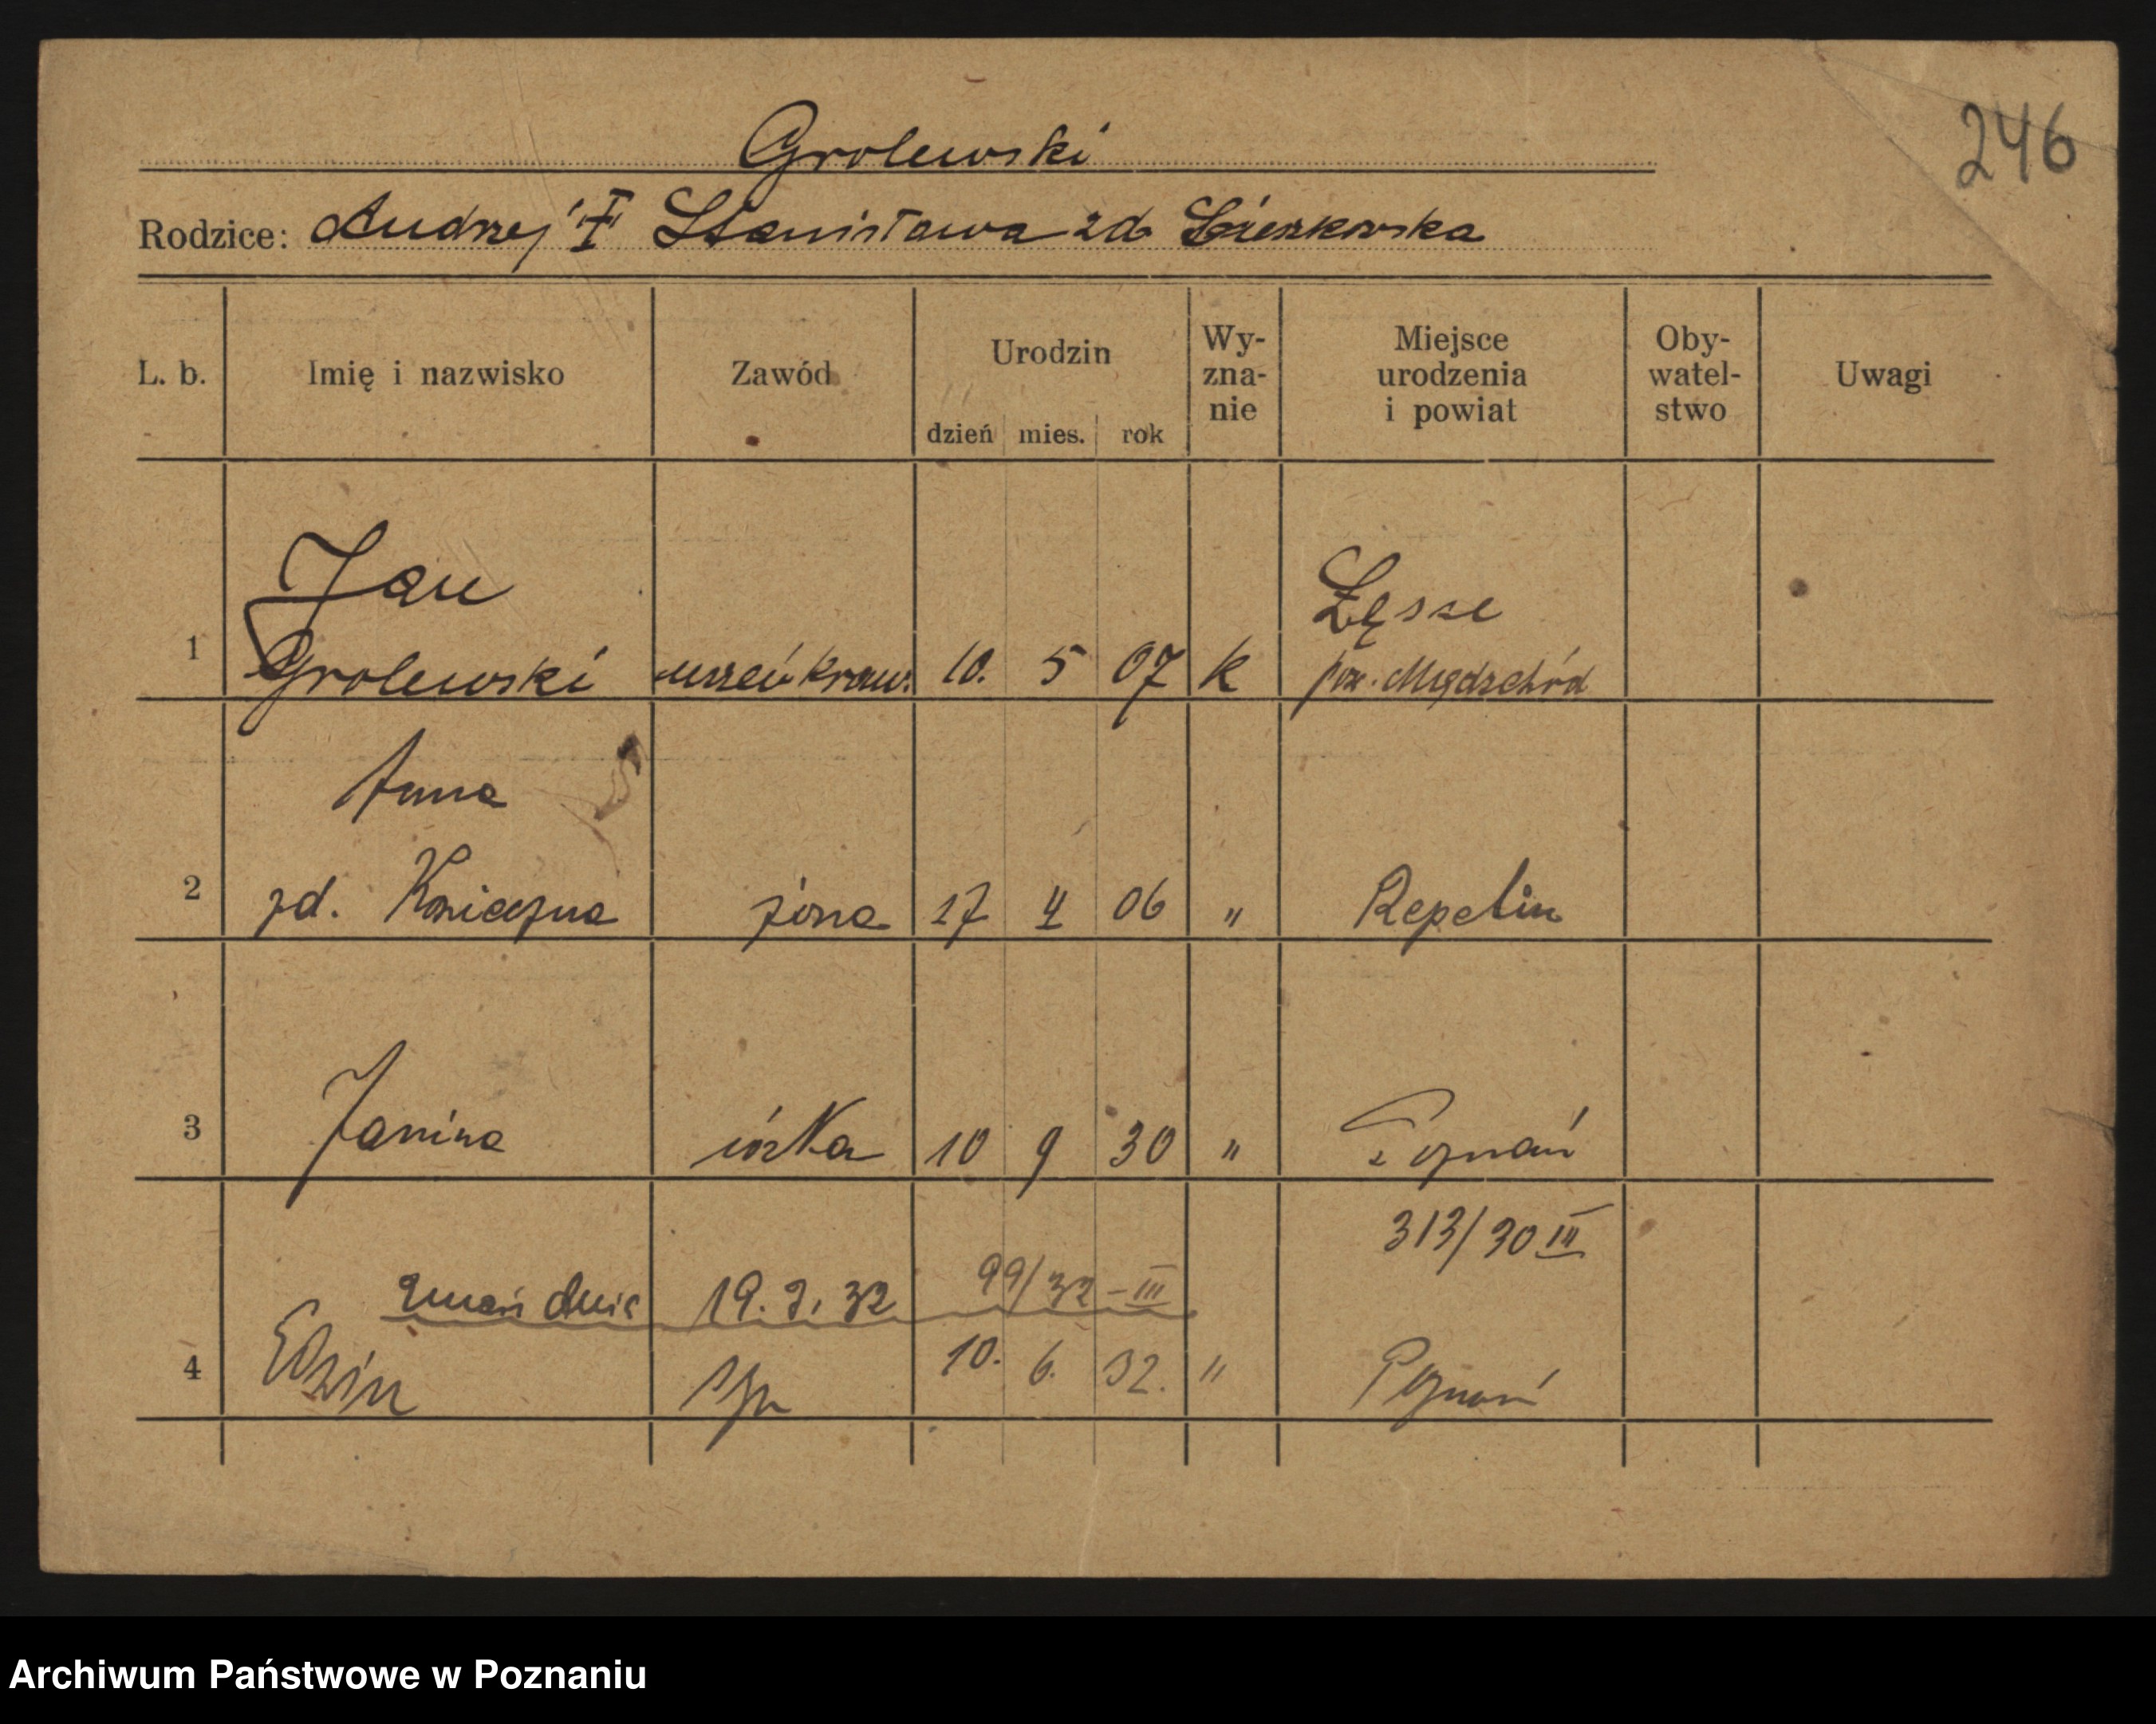 246
Grolewski
Rodzice: Andrzej i Stanisława zd.
L. b. Imię i nazwisko Zawód Urodzin dzień mies. rok Wy-
zna-
nie Miejsce
urodzenia
i powiat Oby-
watel-
stwo Uwagi
Jan
1 Grolewski uczeń kraw. 10. 5 07 k pow. Międzychód
Anna
2 zd. Konieczna żona 17 4 06 " Repelin
3 Janina córka 10 9 30 " Poznań
313/30 III
dnia 19. 2. 32 99/32 - III
4 syn 10. 6. 32. " Poznań
Archiwum Państwowe w Poznaniu